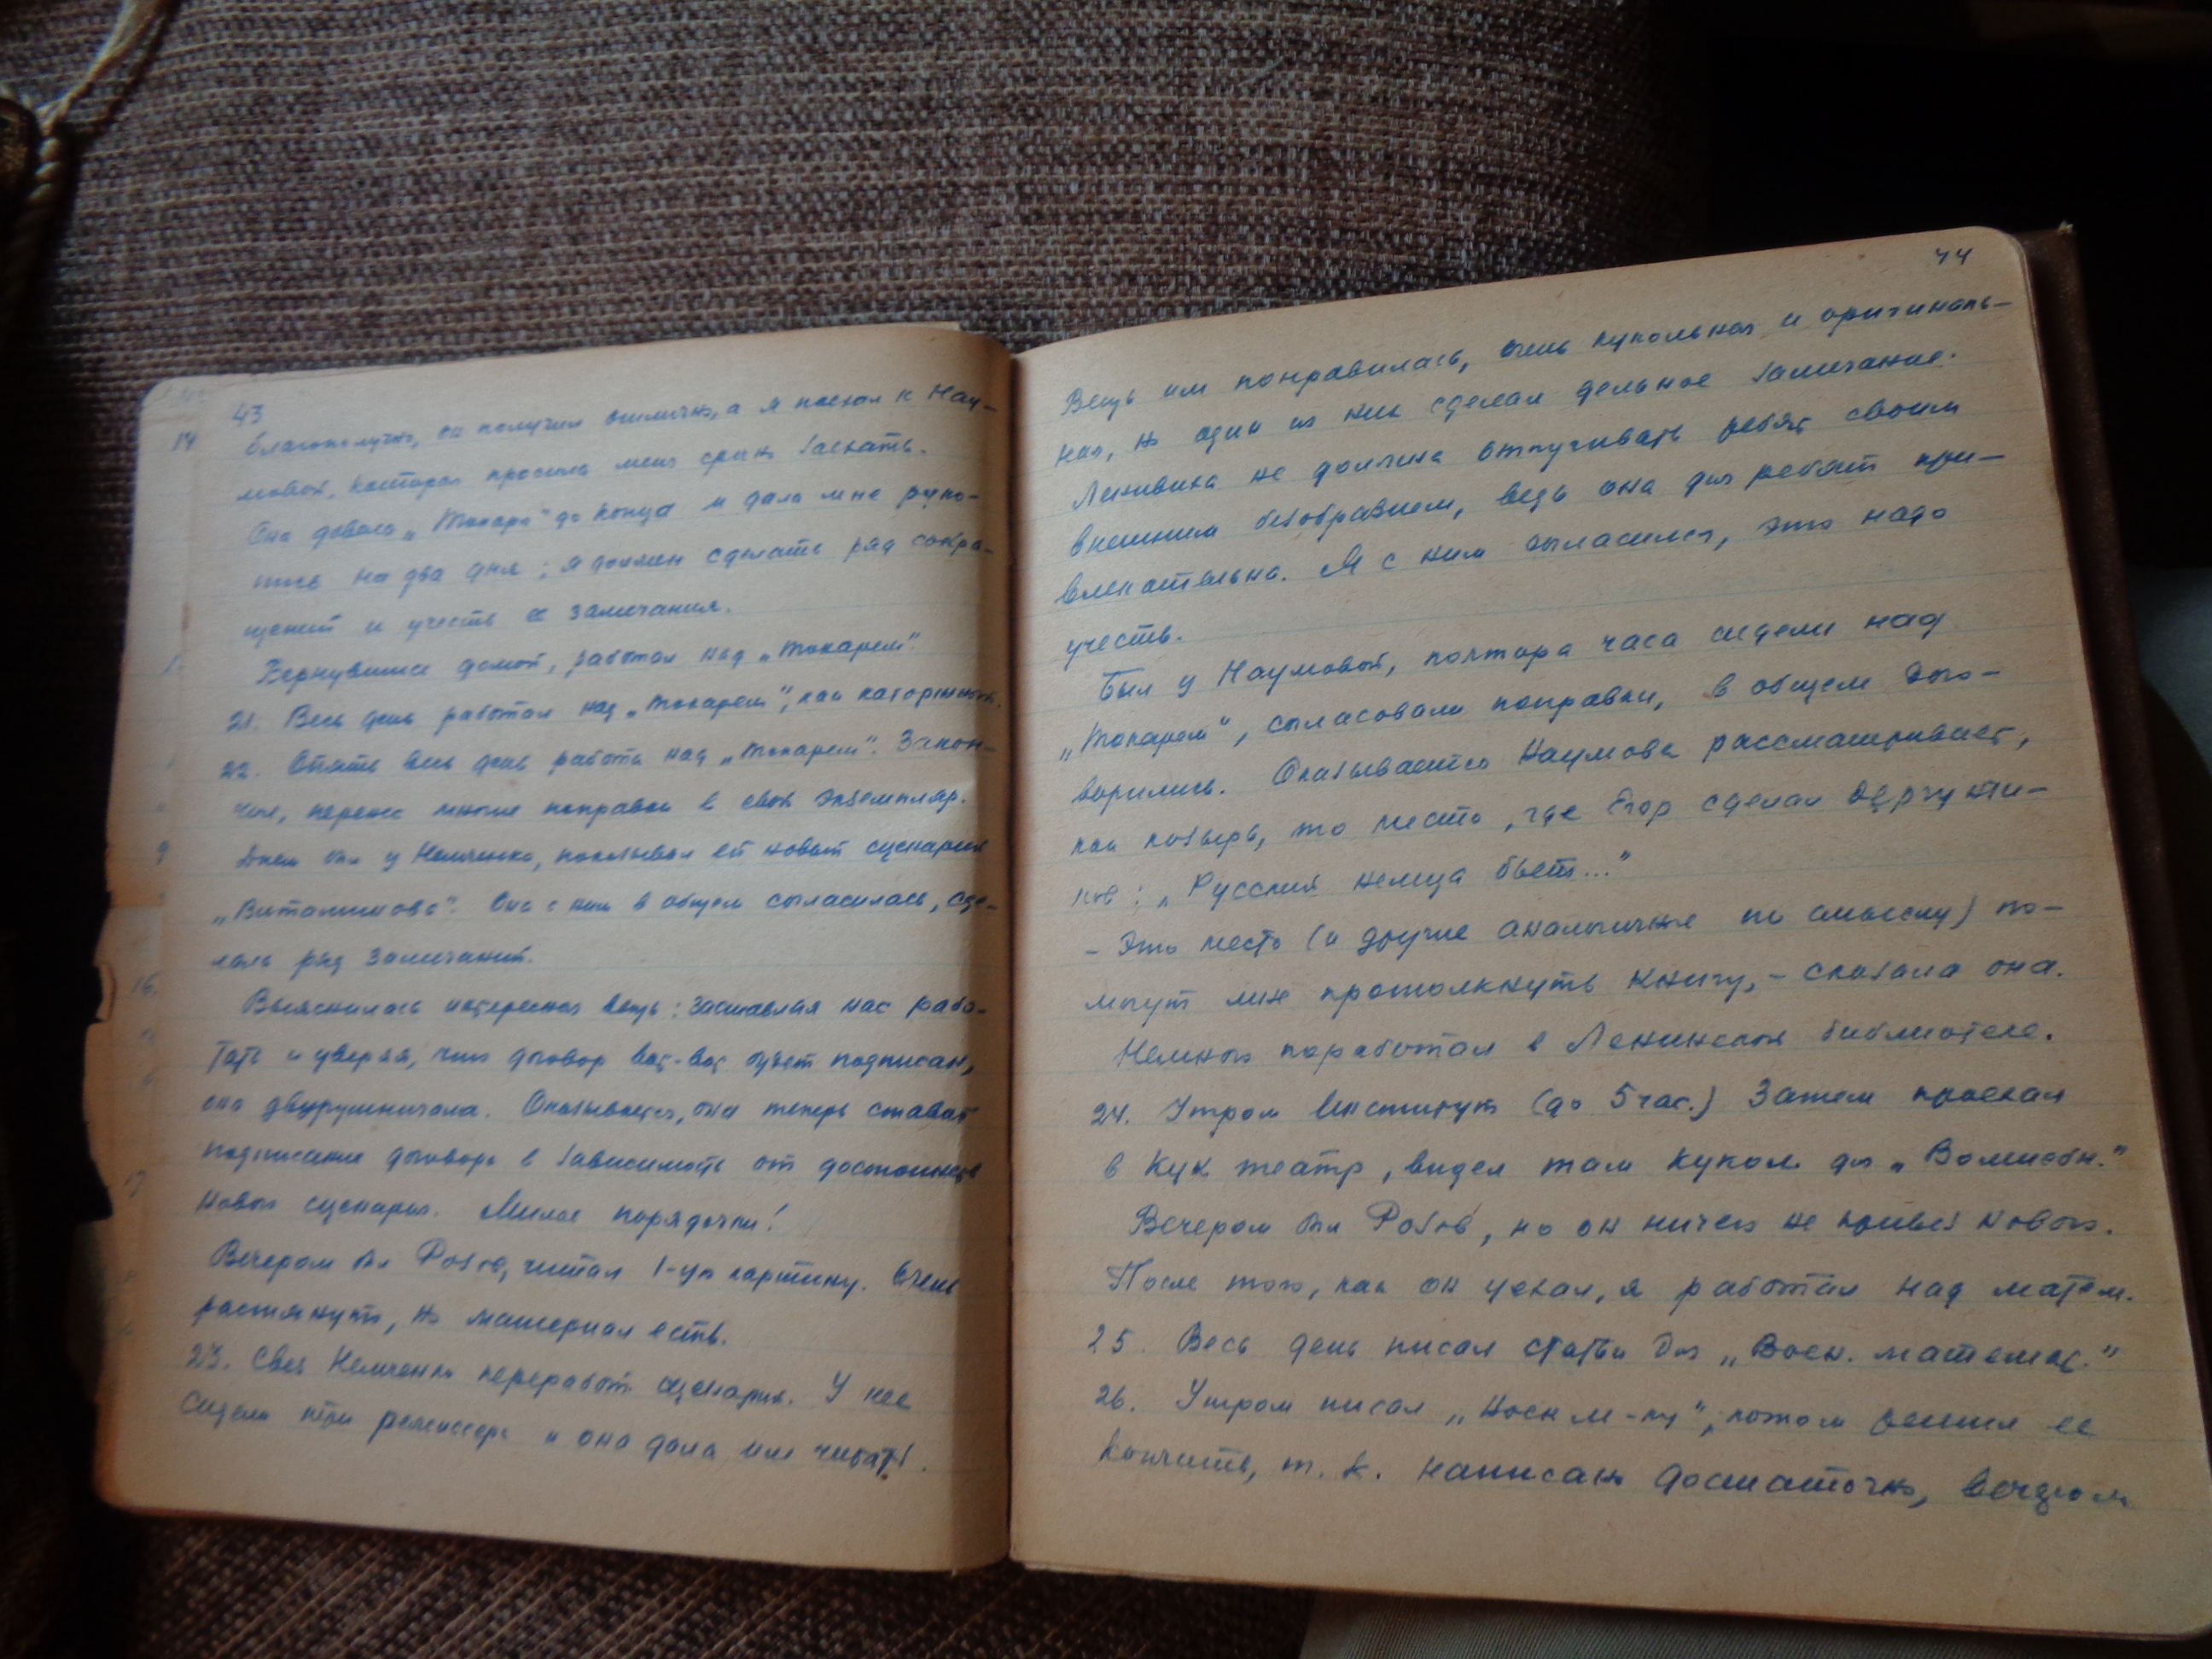 43
благополучно, он получил отлично, а я поехал к Нау-
мовой, которая просила меня срочно заехать.
Она довела „Токаря" до конца и дала мне руко-
пись на два дня; я должен сделать ряд сокра-
щений и учесть ее замечания.
Вернувшись домой, работал над „Токарем".
21. Весь день работал над „Токарем", как каторжный.
22. Опять весь день работа над „Токарем". Закон-
чил, перенес многие поправки в свой экземпляр.
Днем был у Немченко, показывал ей новый сценарий
„Витаминова". Она с ним в общем согласилась, сде-
лала ряд замечаний.
Выяснилась интересная вещь: заставляя нас рабо-
тать и уверяя, что договор вот-вот будет подписан,
она двурушничала. Оказывается, она теперь ставит
подписание договора в зависимость от достоинств
нового сценария. Милые порядочки!
Вечером был Розов, читал 1-ую картину. Очень
растянуто, но материал есть.
23. Свез Немченко переработ. сценарий. У нее
сидели три режиссера и она дала им читать.
14
16.
17
44
Вещь им понравилась, очень кукольная и оригиналь-
ная, но один из них сделал дельное замечание.
Ленивица не должна отпугивать ребят своим
внешним безобразием, ведь она для ребят при-
влекательна. Я с ним согласился, это надо
учесть.
Был у Наумовой, полтора часа сидели над
„Токарем", согласовали поправки, в общем дого-
ворились. Оказывается Наумова рассматривает,
как козырь, то место, где Егор сделал
: „Русский немца бьет..."
– Это место (и другие аналогичные по смыслу) по-
могут мне протолкнуть книгу, – сказала она.
Немного поработал в Ленинской библиотеке.
24. Утром Институт (до 5 час.) Затем проехал
в Кук театр, видел там кукол для „Волшебн."
Вечером был Розов, но он ничего не привез нового.
После того, как он уехал, я работал над матем.
25. Весь день писал статьи для „Воен. математ."
26. Утром писал „Воен м-ку", потом решил ее
кончить, т. к. написано достаточно, вечером